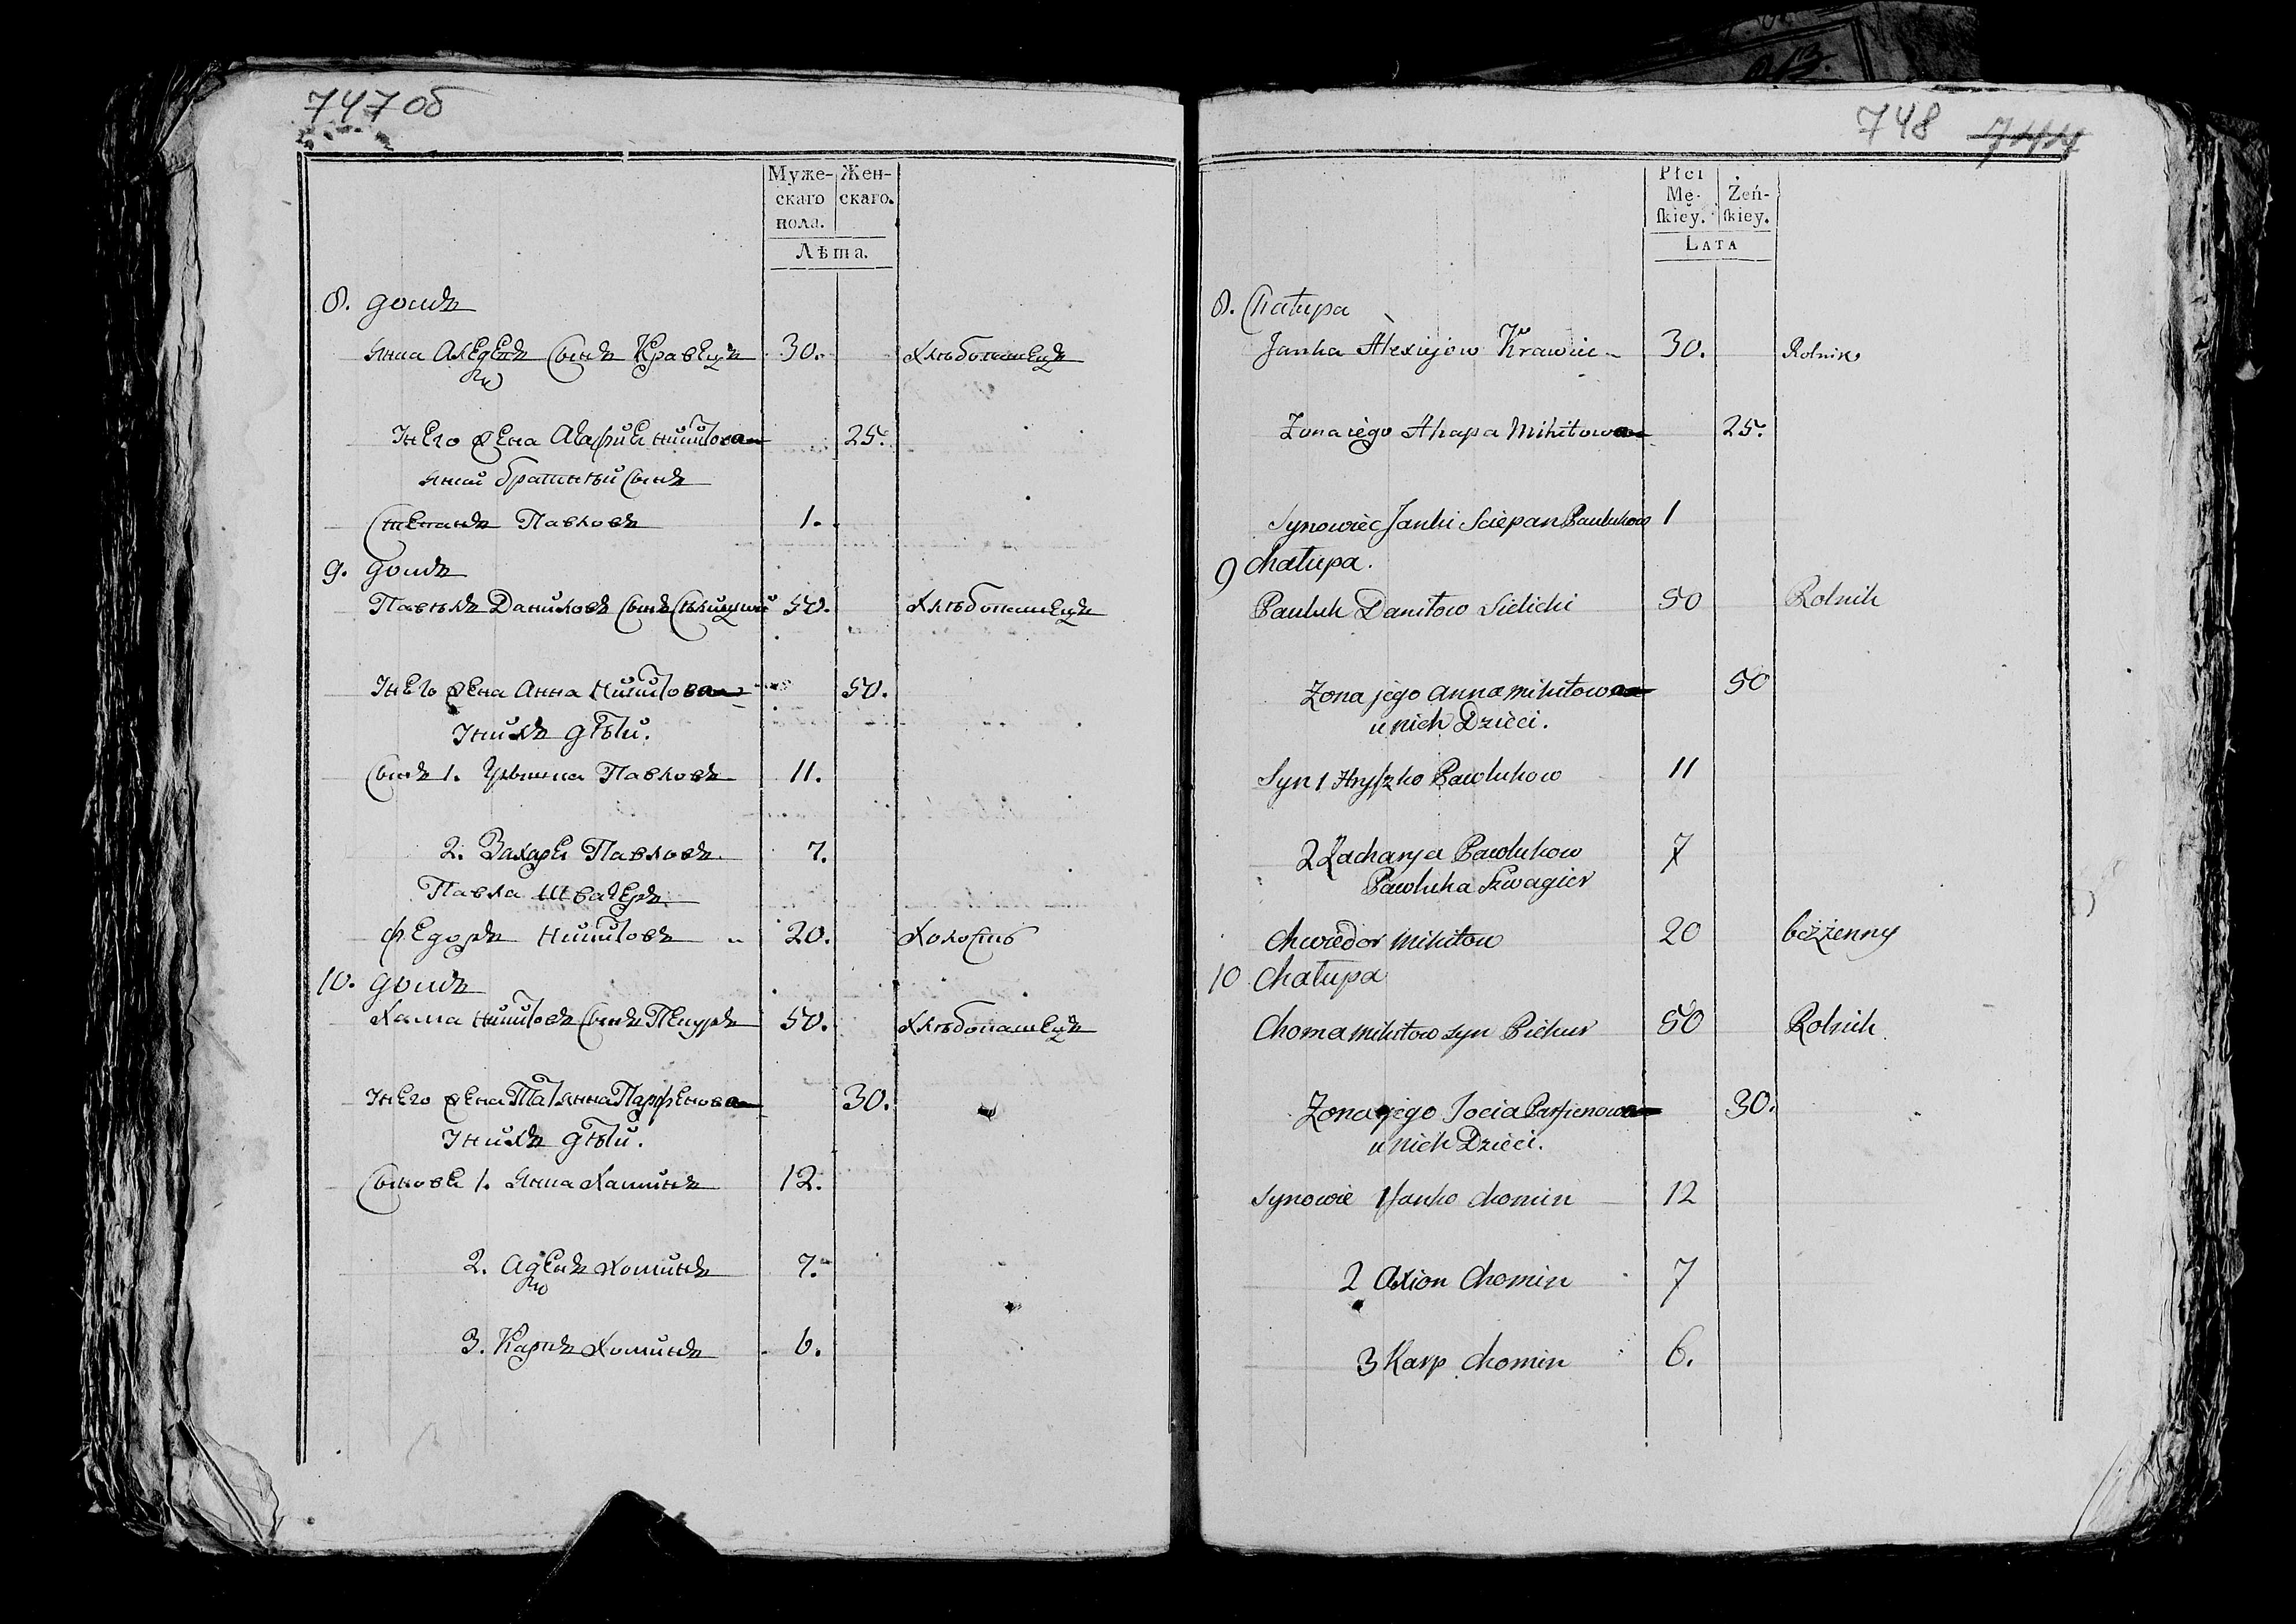 747 об
Муже-
скаго
пола.
Жен-
скаго.
Лѣта.
8. домъ
Янка Алеѯѣевъ Сынъ Кравецъ 30. хлѣбопашецъ
У него жена Агафия Никитова 25.
Янки братнѣй Сынъ
Степанъ Павловъ 1.
9. домъ
Павелъ Даниловъ Сынъ 50. хлѣбопашецъ
У него жена Анна Никитова 50.
У нихъ дѣти.
Сынъ 1. Гришка Павловъ 11.
2. Захаръ Павловъ 7.
Павла швагеръ
Федоръ Никитовъ 20. холостъ
10. домъ
Хама Никитовъ Сынъ 50. хлѣбопашецъ
У него жена Татянна Парфенова 30.
У нихъ дѣти.
Сыновья 1. Янка Хаминъ 12.
2. Хоминъ 7.
3. Карпъ Хоминъ 6.
748 744
Płci
Mę-
ſkiey.
Żeń-
ſkiey.
LATA
8. Chałupa
Janka Alexiejow Krawiec 30. Rolnik
Zona iego Ahapa Mikitowa 25.
Synowiec Janki Sciepan Paulukow 1
9 Chałupa.
Pauluk Daniłow Sielicki 50 Rolnik
Zona jego Anna Mikitowa 50
u nich Dzieci.
Syn 1 Hryſzko Pawlukow 11
2 Zacharya Pawlukow 7
Pawluka Szwagier
Chwiedor Mikitow 20 beżżenny
10 Chałupa
Choma Mikitow syn Piekur 50 Rolnik
Zona jego Jocia Parfienowa 30.
u nich Dzieci.
Synowie 1 Janko Chomin 12
2 Axion Chomin 7
3 Karp Chomin 6.